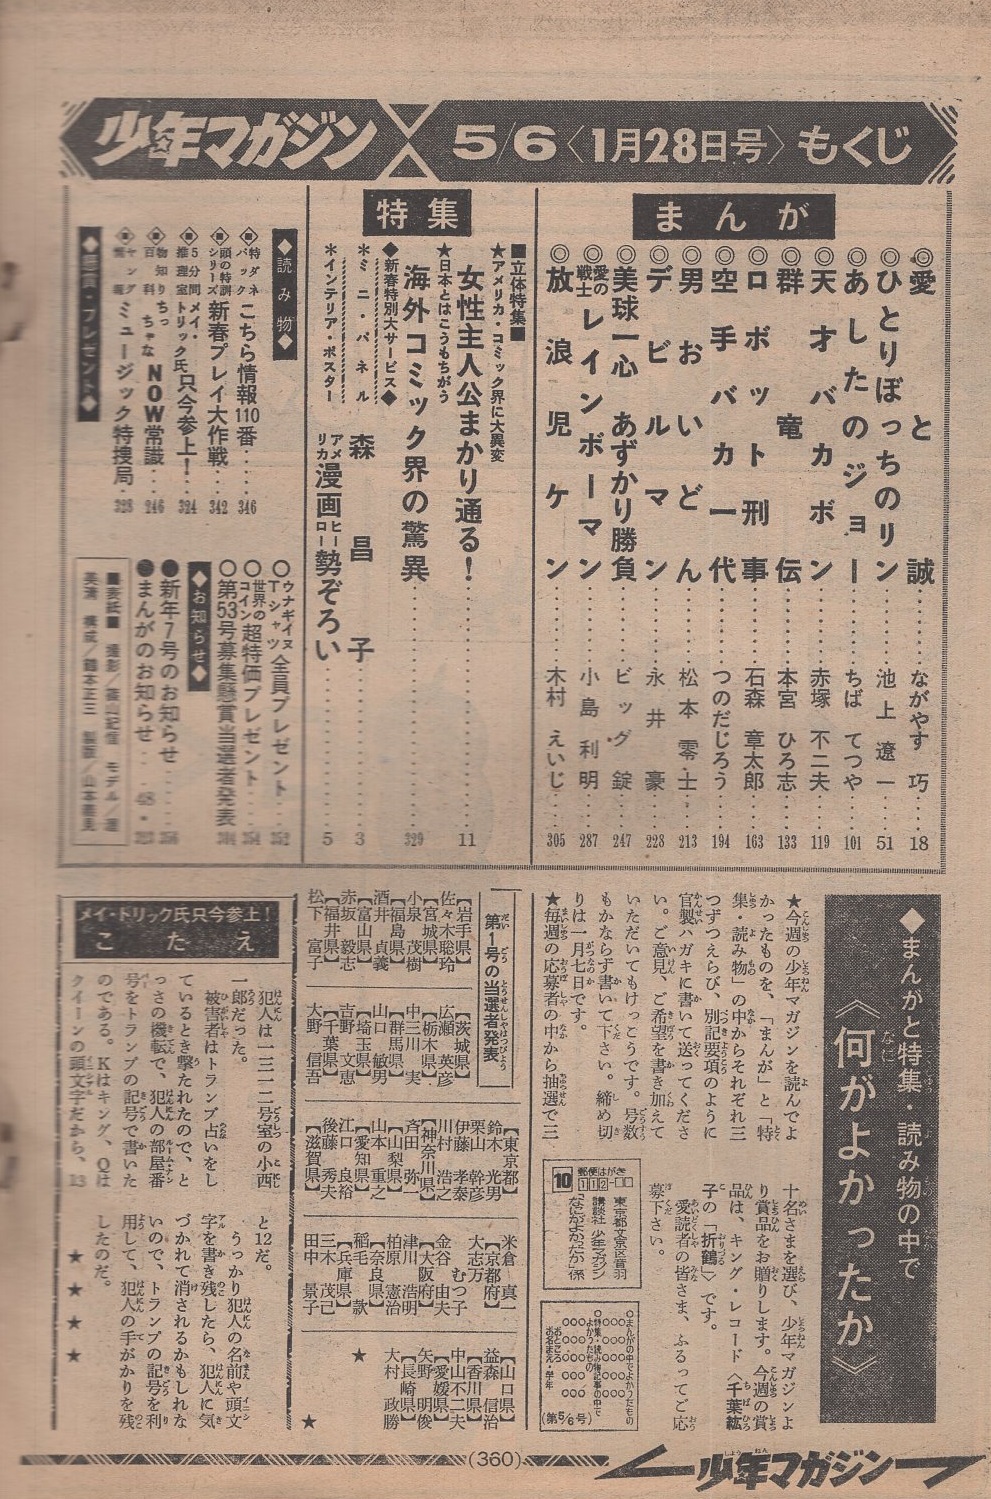 少年マガジン 5/6〈1月28日号〉もくじ
まんが
◎愛と誠……ながやす巧…18
◎ひとりぼっちのリン……池上遼一…51
◎あしたのジョー……ちばてつや…101
◎天才バカボン……赤塚不二夫…119
◎群竜伝……本宮ひろ志…133
◎ロボット刑事……石森章太郎…163
◎空手バカ一代……つのだじろう…194
◎男おいどん……松本零士…213
◎デビルマン……永井豪…228
◎美球一心 あずかり勝負……ビッグ錠…247
◎愛の戦士レインボーマン……小島利明…287
◎放浪児ケン……木村えいじ…305
特集
■立体特集■
★アメリカ・コミック界に大異変
女性主人公まかり通る!……11
★日本とはこうもちがう
海外コミック界の驚異……329
◆新春特別大サービス◆
*ミニ・パネル……森昌子……3
*インテリア・ポスター……アメリカ漫画ヒーロー勢ぞろい……5
◆読み物◆
特ダネパック こちら情報110番……346
頭の特訓シリーズ 新春プレイ大作戦…342
5分間推理室 メイ・トリック氏只今参上!…324
物知り百科 ちょっとちゃなNOW常識……246
ヤング情報 ミュージック特捜局…328
◆懸賞・プレゼント◆
○ウナギイヌTシャツ全員プレゼント……352
○世界のコイン超特価プレゼント……354
○第53号募集懸賞当選者発表
◆お知らせ◆
●新年7号のお知らせ……356
●まんがのお知らせ……48・323
■表紙■ 撮影/篠山紀信
構成/鶴本正三
◆まんがと特集・読み物の中で
《何がよかったか》
★今週の少年マガジンを読んでよ
かったものを、「まんが」と「特
集・読み物」の中からそれぞれ三
つずつえらび、別記要項のように
官製ハガキに書いて送ってくださ
い。ご意見、ご希望を書き加えて
いただいてもけっこうです。号数
もかならず書いて下さい。締め切
りは一月七日です。
★毎週の応募者の中から抽選で三
十名さまを選び、少年マガジンよ
り賞品をお贈りします。今週の賞
品は、キング・レコード〈千葉紘
子の「折鶴」〉です。
愛読者の皆さま、ふるってご応
募下さい。
郵便はがき
112-□□
10
東京都文京区音羽
講談社 少年マガジン
「なにがよかったか」係
○まんがの中でよかったもの
○特集・読み物記事の中で
よかったもの
おところ
お名まえ・学年
(第5/6号)
第1号の当選者発表
【岩手県】
佐々木聡玲
【宮城県】
小泉茂樹
【福島県】
酒井貞義
【富山県】
赤坂毅志
【福井県】
松下富子
【茨城県】
広瀬英彦
【栃木県】
中三川実
【群馬県】
山口敏男
【埼玉県】
吉野文恵
【千葉県】
大野信吾
【東京都】
鈴木光男
栗山幹彦
伊藤孝泰
川村浩之
【神奈川県】
斉田弥一
【山梨県】
山本重之
【愛知県】
江口良裕
後藤秀夫
【滋賀県】
米倉真一
【京都府】
大志万むつ子
金谷由夫
【大阪府】
津川浩明
柏原憲治
【奈良県】
稲毛款
【兵庫県】
三木茂己
田中景子
【山口県】
益森信治
【香川県】
中山不二夫
【愛媛県】
矢野明俊
【長崎県】
大村政勝
★
★
メイ・トリック氏只今参上!
こたえ
犯人は一三一二号室の小西
一郎だった。
被害者はトランプ占いをし
ているとき撃たれたので、と
っさの機転で、犯人の部屋番
号をトランプの記号で書いた
のである。Kはキング、Qは
クイーンの頭文字だから、13
と12だ。
うっかり犯人の名前や頭文
字を書き残したら、犯人に気
づかれて消されるかもしれな
いので、トランプの記号を利
用して、犯人の手がかりを残
したのだ。
★ ★ ★ ★
(360)
少年マガジン